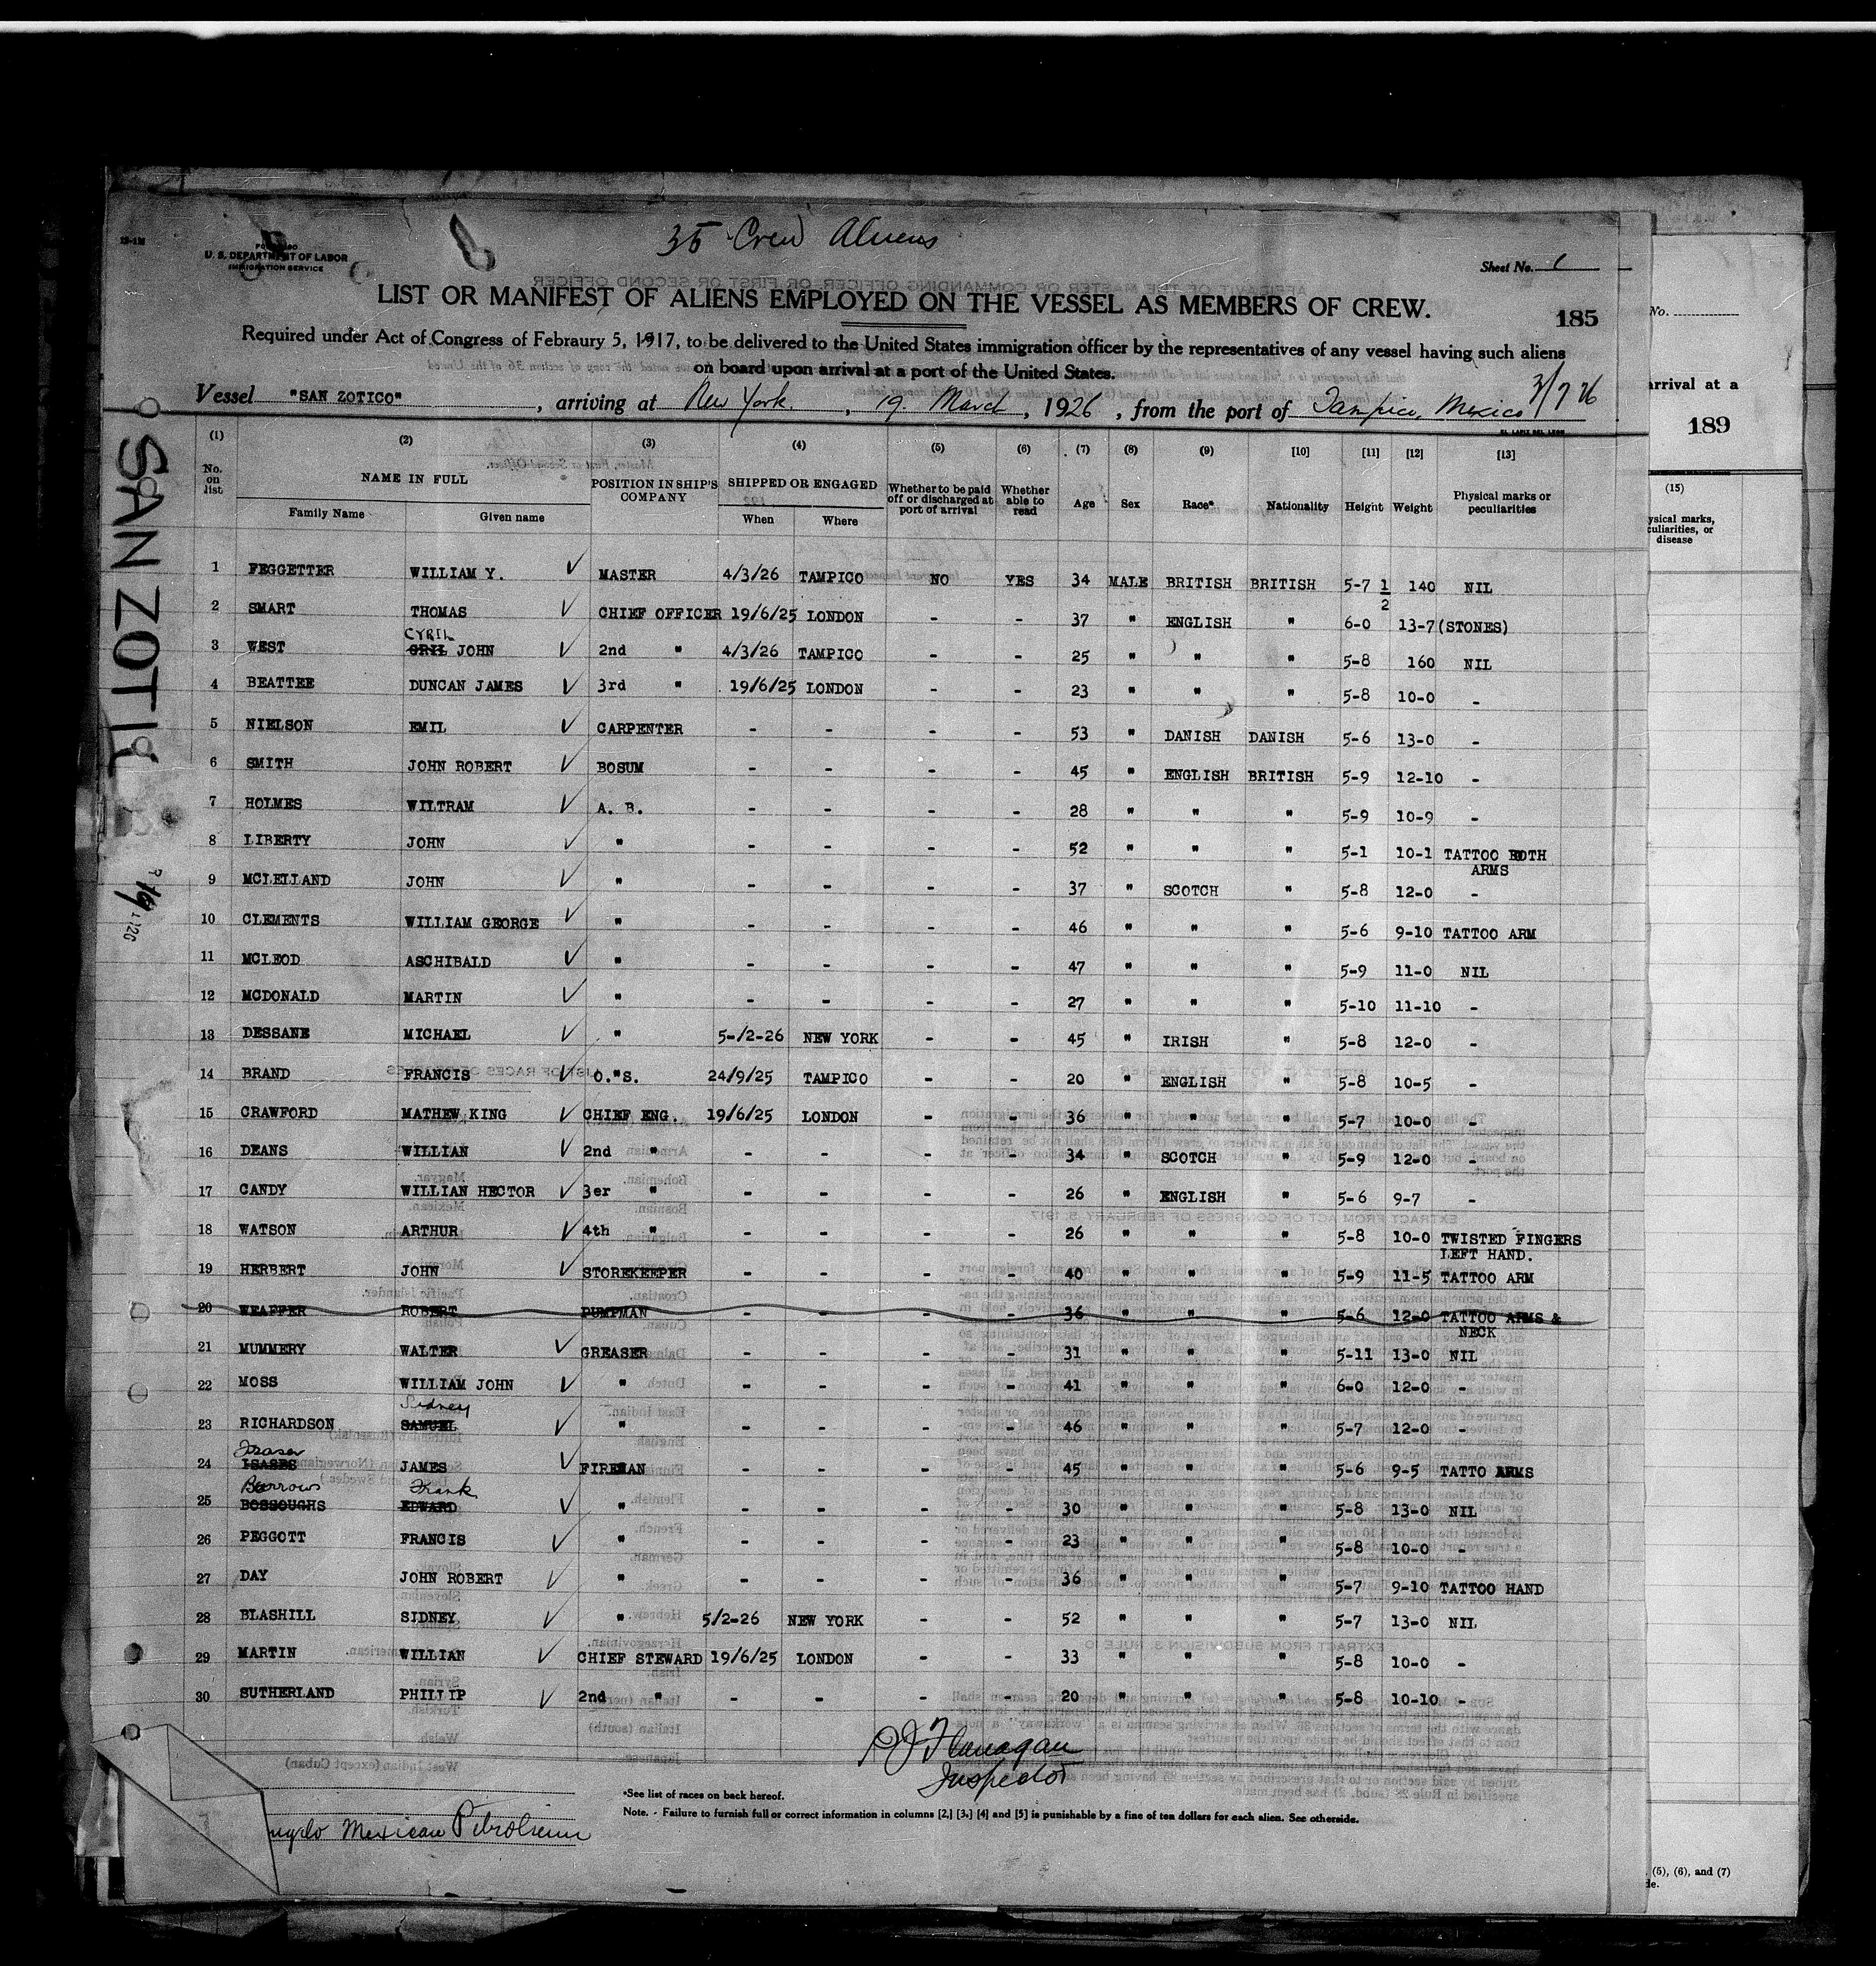 35 Crew Aliens
U. S. DEPARTMENT OF LABOR
IMMIGRATION SERVICE
Sheet No. 1
LIST OR MANIFEST OF ALIENS EMPLOYED ON THE VESSEL AS MEMBERS OF CREW.
185
Required under Act of Congress of Febraury 5, 1917, to be delivered to the United States immigration officer by the representatives of any vessel having such aliens
on board upon arrival at a port of the United States.
Vessel "SAN ZOTICO", arriving at New York, 19 March, 1926, from the port of Tampico, Mexico
(1) (2) (3) (4) (5) (6) (7) (8) (9) [10] [11] [12] [13]
No. on list NAME IN FULL POSITION IN SHIP'S COMPANY SHIPPED OR ENGAGED Whether to be paid off or discharged at port of arrival Whether able to read Age Sex Race* Nationality Height Weight Physical marks or peculiarities
Family Name Given name When Where
1 FEGGETTER WILLIAM Y. ✓ MASTER 4/3/26 TAMPICO NO YES 34 MALE BRITISH BRITISH 5-7 1/2 140 NIL
2 SMART THOMAS ✓ CHIEF OFFICER 19/6/25 LONDON - - 37 " ENGLISH " 6-0 13-7 (STONES)
CYRIL
3 WEST JOHN ✓ 2nd " 4/3/26 TAMPICO - - 25 " " " 5-8 160 NIL
4 BEATTEE DUNCAN JAMES ✓ 3rd " 19/6/25 LONDON - - 23 " " " 5-8 10-0 -
5 NIELSON EMIL ✓ CARPENTER - - - - 53 " DANISH DANISH 5-6 13-0 -
6 SMITH JOHN ROBERT ✓ BOSUM - - - - 45 " ENGLISH BRITISH 5-9 12-10 -
7 HOLMES WILTRAM ✓ A. B. - - - - 28 " " " 5-9 10-9 -
8 LIBERTY JOHN ✓ " - - - - 52 " " " 5-1 10-1 TATTOO BOTH
ARMS
9 MCLELLAND JOHN ✓ " - - - - 37 " SCOTCH " 5-8 12-0 -
10 CLEMENTS WILLIAM GEORGE ✓ " - - - - 46 " " " 5-6 9-10 TATTOO ARM
11 MCLEOD ASCHIBALD ✓ " - - - - 47 " " " 5-9 11-0 NIL
12 MCDONALD MARTIN ✓ " - - - - 27 " " " 5-10 11-10 -
13 DESSANE MICHAEL ✓ " 5-/2-26 NEW YORK - - 45 " IRISH " 5-8 12-0 -
14 BRAND FRANCIS ✓ O."S. 24/9/25 TAMPICO - - 20 " ENGLISH " 5-8 10-5 -
15 CRAWFORD MATHEW KING ✓ CHIEF ENG. 19/6/25 LONDON - - 36 " " " 5-7 10-0 -
16 DEANS WILLIAN ✓ 2nd " - - - - 34 " SCOTCH " 5-9 12-0 -
17 CANDY WILLIAN HECTOR ✓ 3er " - - - - 26 " ENGLISH " 5-6 9-7 -
18 WATSON ARTHUR ✓ 4th " - - - - 26 " " " 5-8 10-0 TWISTED FINGERS
LEFT HAND.
19 HERBERT JOHN ✓ STOREKEEPER - - - - 40 " " " 5-9 11-5 TATTOO ARM
20 WEAFFER ROBERT PUMPMAN - - - - 36 " " " 5-6 12-0 TATTOO ARMS &
NECK
21 MUMMERY WALTER ✓ GREASER - - - - 31 " " " 5-11 13-0 NIL
22 MOSS WILLIAM JOHN ✓ " - - - - 41 " " " 6-0 12-0 -
Sidney
23 RICHARDSON SAMUEL ✓ " - - - - 46 " " " 5-7 12-0 -
Fraser
24 JAMES ✓ FIREMAN - - - - 45 " " " 5-6 9-5 TATTO ARMS
Barrows Frank
25 BOSSOUGHS EDWARD ✓ " - - - - 30 " " " 5-8 13-0 NIL
26 PEGGOTT FRANCIS ✓ " - - - - 23 " " " 5-8 10-0 -
27 DAY JOHN ROBERT ✓ " - - - - 36 " " " 5-7 9-10 TATTOO HAND
28 BLASHILL SIDNEY ✓ " 5/2-26 NEW YORK - - 52 " " " 5-7 13-0 NIL
29 MARTIN WILLIAN ✓ CHIEF STEWARD 19/6/25 LONDON - - 33 " " " 5-8 10-0 -
30 SUTHERLAND PHILLIP ✓ 2nd " - - - - 20 " " " 5-8 10-10 -
Flanagan
Inspector
*See list of races on back hereof.
Note. - Failure to furnish full or correct information in columns [2,] [3,] [4] and [5] is punishable by a fine of ten dollars for each alien. See otherside.
Mexican Petroleum
SAN ZOTIC
No.
arrival at a
189
(15)
ysical marks,
culiarities, or
disease
(5), (6), and (7)